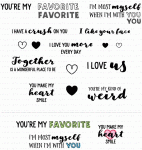 YOU'RE MY FAVORITE
FAVORITE
I'M MOST myself
WHEN I'M WITH YOU
I HAVE a crush ON YOU
I like your face
I LOVE YOU more
EVERY DAY
Together
IS A WONDERFUL PLACE TO BE
I LOVE us
YOU MAKE MY
heart
SMILE
YOU'RE MY KIND OF
weird
YOU'RE MY FAVORITE
I'M MOST myself
WHEN I'M WITH YOU
YOU MAKE MY
heart
SMILE